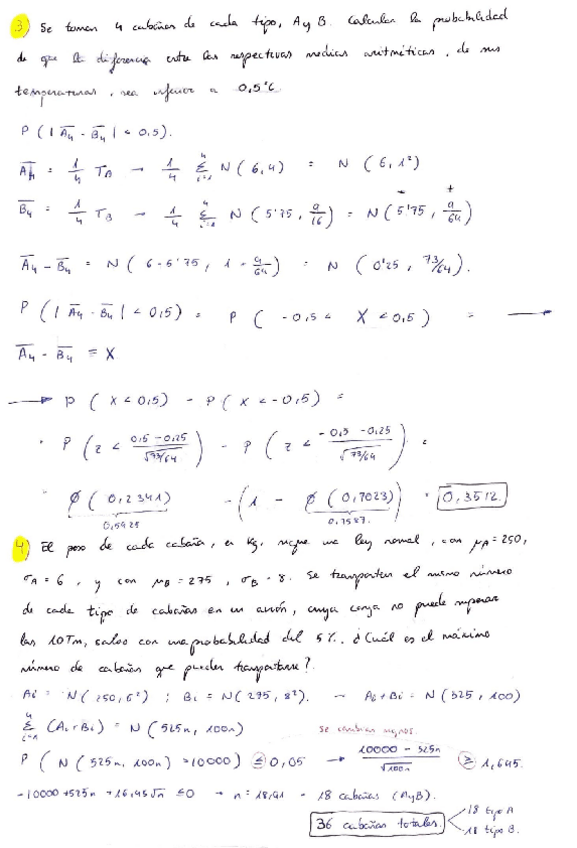 3) Se toman 4 cabañas de cada tipo, A y B. Calcular la probabilidad
de que la diferencia entre las respectivas medias aritméticas, de sus
temperaturas, sea inferior a 0,5°C
P ( | A̅₄ - B̅₄ | < 0,5 ).
A̅₄ = 1/4 T_A → 1/4 Σ N ( 6, 4 ) = N ( 6, 1² )
B̅₄ = 1/4 T_B → 1/4 Σ N ( 5'75, 9/16 ) = N ( 5'75, 9/64 )
A̅₄ - B̅₄ = N ( 6 - 5'75, 1 - 9/64 ) = N ( 0'25, 73/64 ).
P ( | A̅₄ - B̅₄ | < 0,5 ) = P ( -0,5 < X < 0,5 ) = →
A̅₄ - B̅₄ = X
→ P ( X < 0,5 ) - P ( X < -0,5 ) =
P ( z < (0,5 - 0,25)/√73/64 ) - P ( z < (-0,5 - 0,25)/√73/64 ) =
ø ( 0,2341 ) - ( 1 - ø ( 0,7023 ) ) = 0,3512.
0,5925 0,7587.
4) El peso de cada cabaña, en Kg, sigue una ley normal, con μ_A = 250,
σ_A = 6, y con μ_B = 275, σ_B = 8. Se transportan el mismo número
de cada tipo de cabañas en un avión, cuya carga no puede superar
las 10Tm, salvo con una probabilidad del 5%. ¿Cuál es el máximo
número de cabañas que pueden transportarse?
Ai = N ( 250, 6² ) ; Bi = N ( 275, 8² ). → Ai + Bi = N ( 525, 100 )
Σ ( Ai + Bi ) = N ( 525n, 100n ) se cambian signos.
P ( N ( 525n, 100n ) > 10000 ) ≤ 0,05 → (10000 - 525n)/√100n ≥ 1,645.
-10000 + 525n + 16,45√n ≤ 0 → n = 18,91 → 18 cabañas (A y B).
36 cabañas totales. 18 tipo A
18 tipo B.